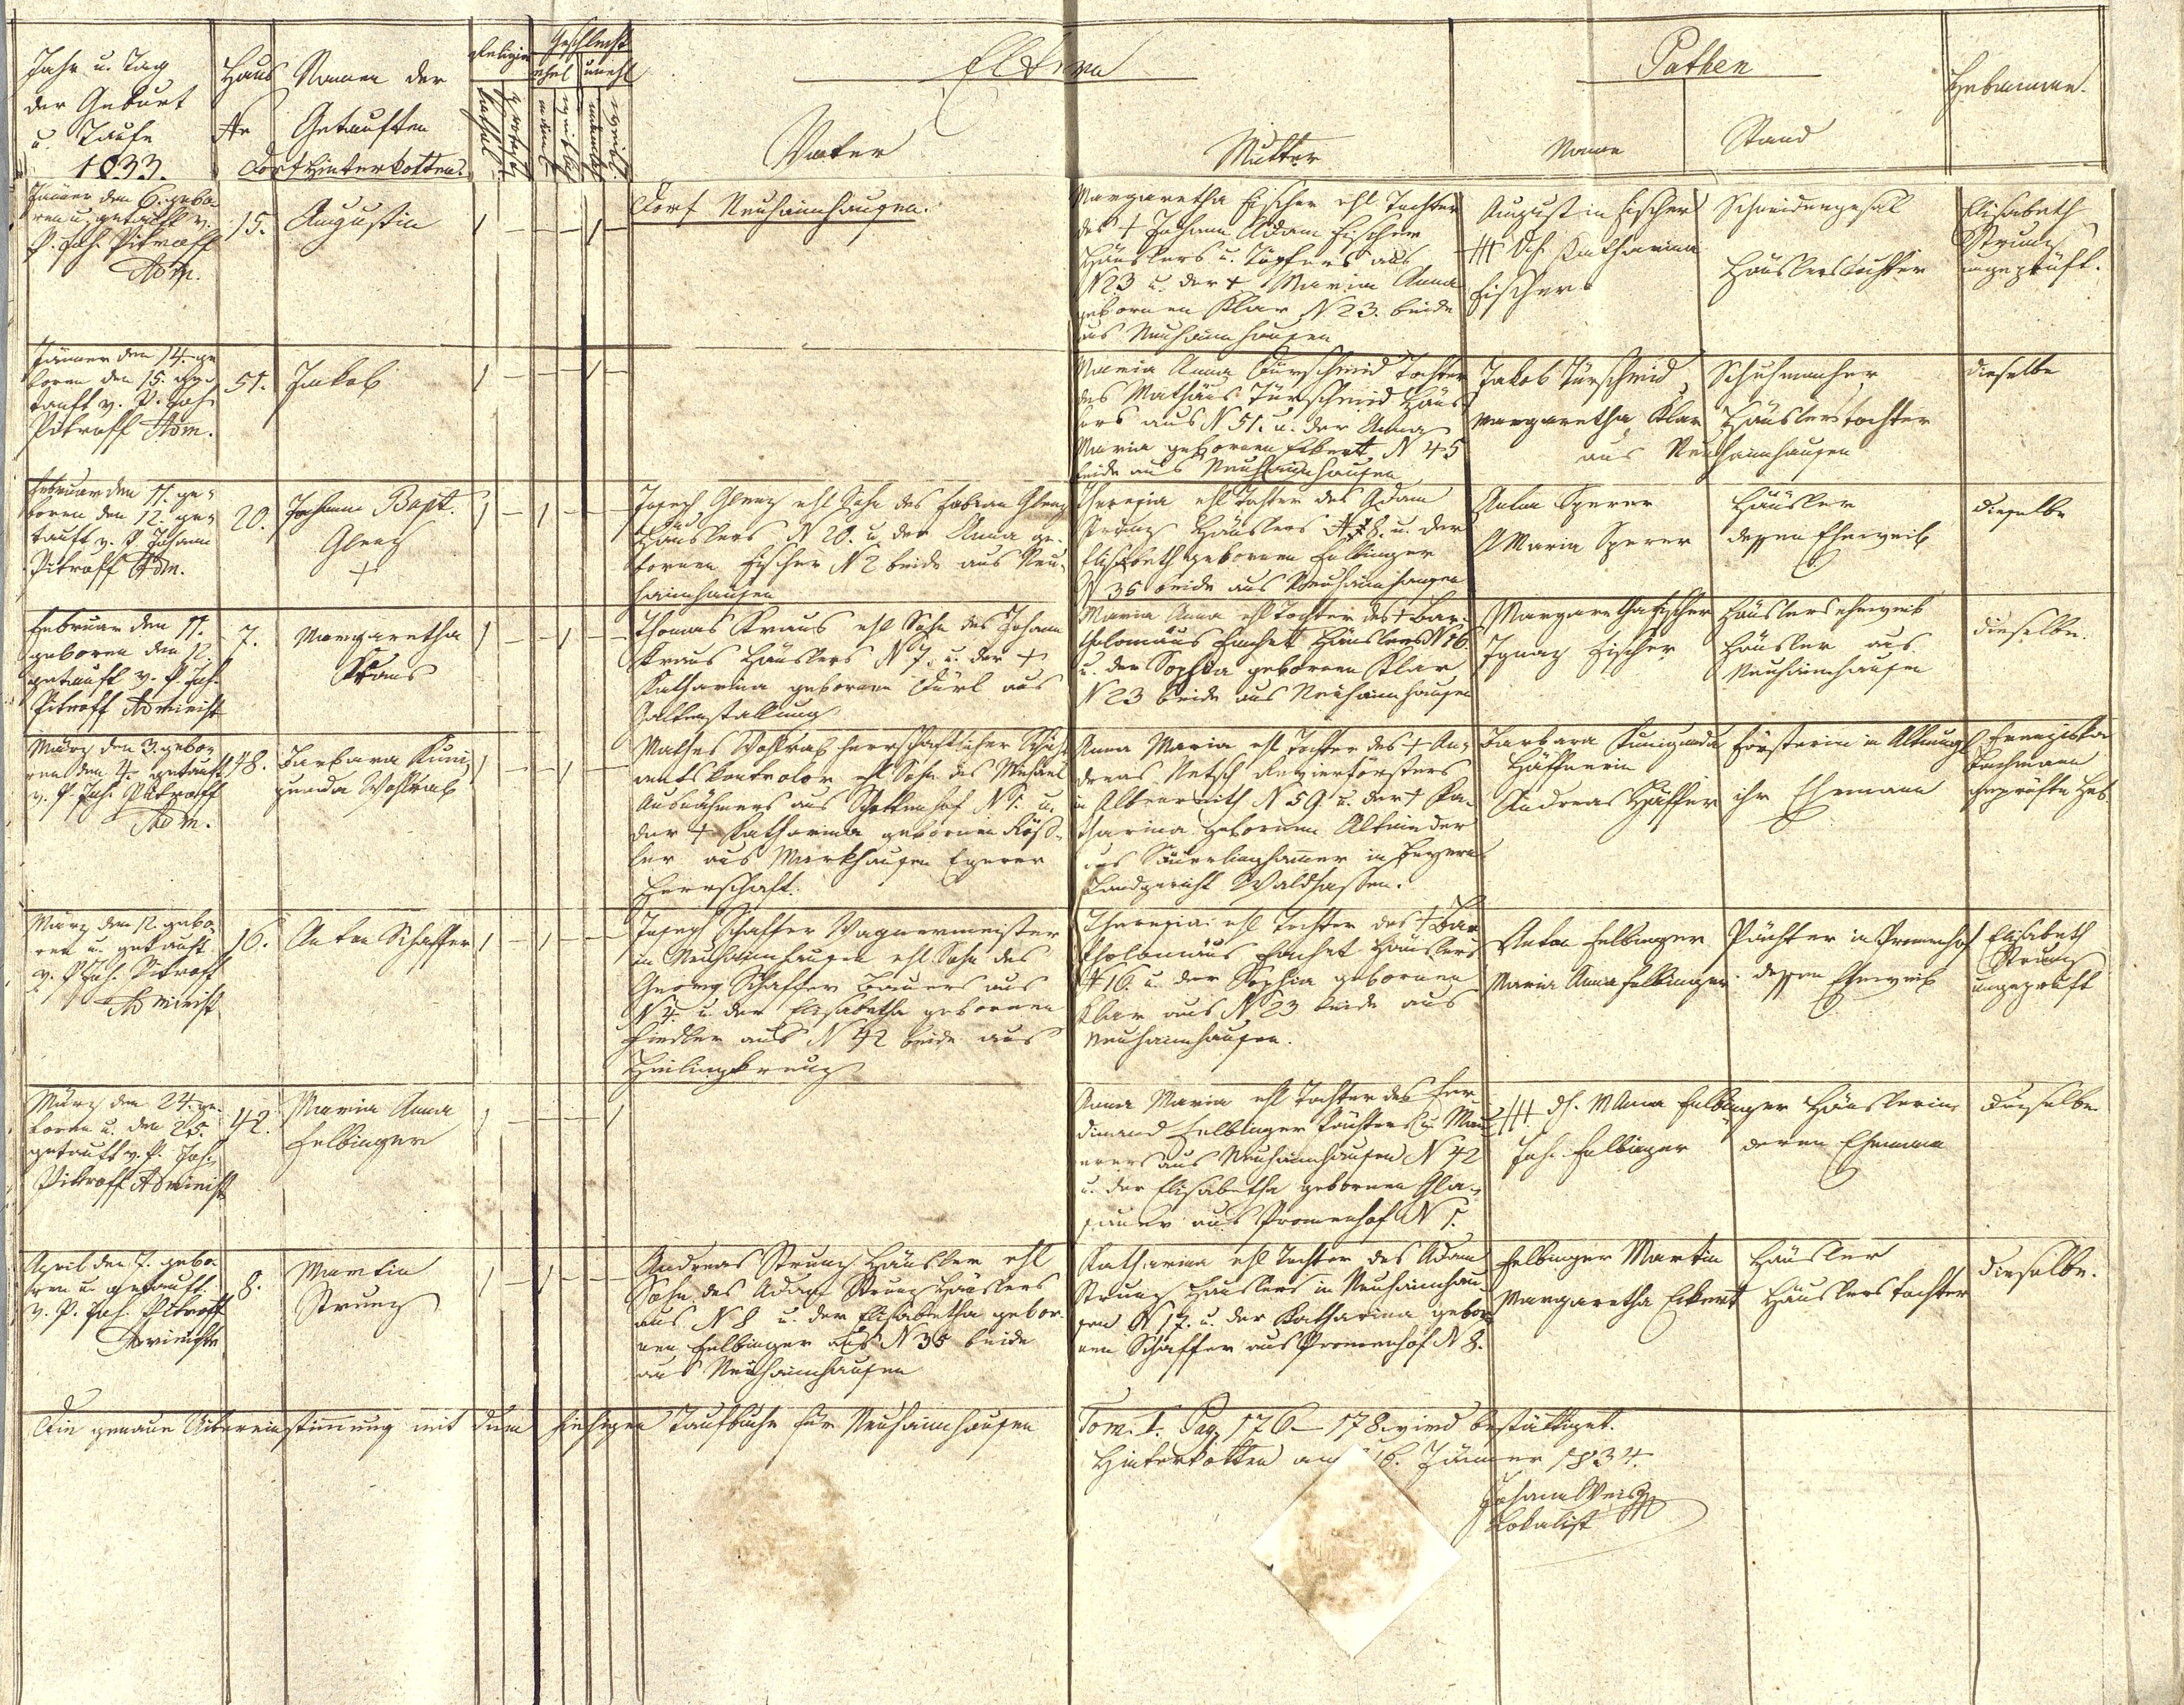 Jahr u. Tag
der Geburt
u. Taufe
1833.
Haus
Nr
Namen der
Getauften
Dorf Hinterkotten.
Religion
kathol.
protest.
Geschlecht
ehel
unehl
männl
weibl
männl
weibl
Eltern
Vater
Mutter
Pathen
Name
Stand
Hebamme.
Jänner den 6. gebo-
ren u. getauft v.
P. Joh. Pitroff
Adm.
15.
Augustin
Dorf Neuhaimhausen.
Margaretha Fischer ehl Tochter
des + Johann Adam Fischer
Häuslers u. Töpfers aus
N 23 u. der + Maria Anna
gebornen Klar N 23. beide
aus Neuhaimhausen
Augustin Fischer
Katharina
Fischer
Schneidergesel
Häuslerstochter
Elisabeth
Strunz
ungeprüft.
Jänner den 14. ge
boren den 15. ge-
tauft v. P. Joh
Pitroff Adm.
51.
Jakob
Maria Anna Türschmid Tochter
des Mathäus Türschmid Häus-
lers aus N 51. u. der Anna
Maria gebornen Eckert N 45
beide aus Neuhaimhausen
Jakob Türschmid
Margaretha Klar
Schuhmacher
Häuslerstochter
aus Neuhaimhausen
dieselbe
Februar den 11. ge-
boren den 12. ge-
tauft v. P Johann
Pitroff Adm.
20.
Johann Bapt.
Glenz
+
Joseph Glenz ehl Sohn des Fabian Glenz
Häuslers N 20. u. der Anna ge-
bornen Fischer N 2 beide aus Neu-
haimhausen
Theresia ehl Tochter des Adam
Strunz Häuslers N 8. u. der
Elisabetha gebornen Felbinger
N 35 beide aus Neuhaimhausen
Anton Sperer
A Maria Sperer
Häusler
dessen Eheweib
dieselbe
Februar den 11.
geboren den 12.
getauft v. P. Joh.
Pitroff Administ
7.
Margaretha
Kraus
Thomas Kraus ehl Sohn des Johann
Kraus Häuslers N 7. u. der +
Katharina gebornen Dürl aus
Maria Anna ehl Tochter des + Bar-
tholomäus Häuslers N 16.
u. der Sophia gebornen Klar
N 23 beide aus Neuhaimhausen
Margaretha Fischer
Ignaz Fischer
Häuslers eheweib
Häusler aus
Neuhaimhausen
dieselbe.
März den 3. gebo-
ren den 4. getauft
v. P. Joh. Pitroff
Adm.
48.
Barbara Kuni-
gunda Wohlrab
Mathes Wohlrab herrschaftlicher
amtskontrolor ehl Sohn des Michael
Ausnähmers aus Schottenhof N 1. u.
der + Katharina gebornen Röß-
ler aus Markhausen Egerer
Herrschaft.
Anna Maria ehl Tochter des + An-
dreas Netsch Revierförsters
in Albernreith N 59. u. der + Ka-
tharina gebornen
aus in Bayern
Landgericht Waldsassen.
Barbara Kunigunda
Häffnerin
Andreas Häffner
Försterin in
ihr Ehemann
Franziska
Bachmann
geprüfte Heb.
März den 12 gebo-
ren u. getauft
v. P Joh. Pitroff
Administ
16.
Anton Schaffer
Joseph Schaffer Wagnermeister
in Neuhaimhausen ehl Sohn des
Georg Schaffer Bauers aus
N 4. u. der Elisabetha gebornen
Fiedler aus N 42 beide aus
Heiligkreuz
Theresia ehl Tochter des + Bar
tholomäus Häuslers
N 16. u. der Sophia gebornen
Klar aus N 23 beide aus
Neuhaimhausen.
Anton Felbinger
Maria Anna Felbinger
Pächter in Promenhof
dessen Eheweib
Elisabeth
Strunz
ungeprüft
März den 24. ge-
boren u. den 25.
getauft v. P. Joh.
Pitroff Administ
42.
Maria Anna
Felbinger
Anna Maria ehl Tochter des Fer
dinand Felbinger u. Mau-
rers aus Neuhaimhausen N 42
u. der Elisabetha gebornen Gla-
ser aus Promenhof N 1.
M Anna Felbinger
Joh. Felbinger
Häuslerin
deren Ehemann
dieselbe
April den 7. gebo-
ren u. getauft
v. P. Joh. Pitroff
8.
Martin
Strunz
Andreas Strunz Häusler ehl
Sohn des Adam Strunz Häuslers
aus N 8 u. der Elisabetha gebor-
nen Felbinger aus N 35 beide
aus Neuhaimhausen
Katharina ehl Tochter des Adam
Strunz Häuslers in Neuhaimhau
sen N 17. u. der Katharina gebor-
nen Schaffer aus Promenhof N 8.
Felbinger Martin
Margaretha Eckert
Häusler
Häuslerstochter
dieselbe.
Die genaue Uibereinstimmung mit dem hiesigen Taufbuche für Neuhaimhausen Tom. I. Pag. 176–178. wird bestättiget.
Hinterkotten am 16. Jänner 1834.
Johann Weiß
Lokalist